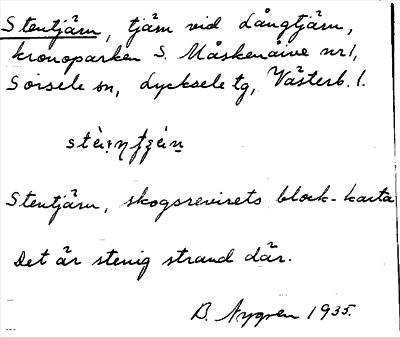 Stentjärn, tjärn vid Långtjärn,
kronoparken S. Måskenåive nr 1,
Sorsele sn, Lycksele tg, Västerb. l.
Stentjärn, skogsrevirets block-karta
Det är stenig strand där.
B. Nygren 1935.